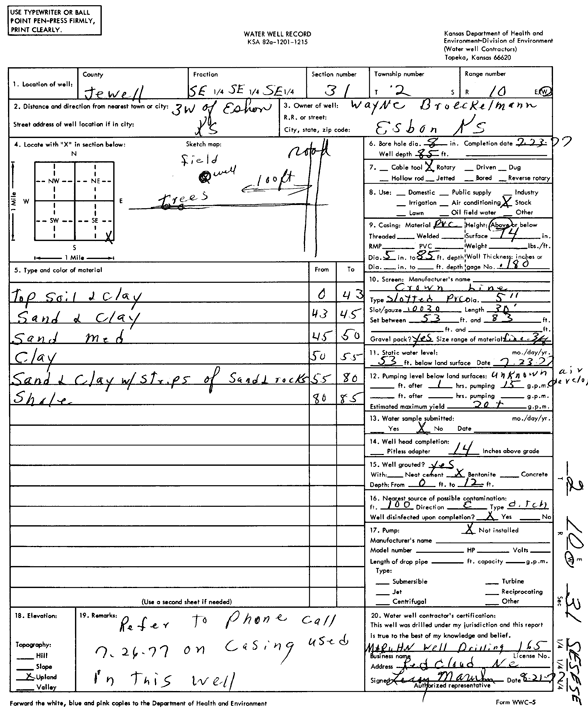 USE TYPEWRITER OR BALL
POINT PEN-PRESS FIRMLY,
PRINT CLEARLY.
WATER WELL RECORD
KSA 82a-1201-1215
Kansas Department of Health and
Environment-Division of Environment
(Water well Contractors)
Topeka, Kansas 66620
1. Location of well: County Jewell Fraction SE 1/4 SE 1/4 SE 1/4 Section number 31 Township number T 2 S Range number R 10 E(W)
2. Distance and direction from nearest town or city: 3W of Esbon
Street address of well location if in city: KS
3. Owner of well: Wayne Broeckelmann
R.R. or street:
City, state, zip code: Esbon KS
4. Locate with "X" in section below:
N
NW NE
W E
SW SE
X
S
1 Mile
1 Mile
Sketch map:
field
well
road
100ft
trees
5. Type and color of material From To
Top Soil & Clay 0 43
Sand & Clay 43 45
Sand med 45 50
Clay 50 55
Sand & Clay w/ Strips of Sand & rocks 55 80
Shale 80 85
(Use a second sheet if needed)
6. Bore hole dia. 8 in. Completion date 7-23-77
Well depth 85 ft.
7. Cable tool X Rotary Driven Dug
Hollow rod Jetted Bored Reverse rotary
8. Use: Domestic Public supply Industry
Irrigation Air conditioning X Stock
Lawn Oil field water Other
9. Casing: Material PVC Height: Above or below
Threaded Welded Surface 14 in.
RMP PVC Weight lbs./ft.
Dia. 5 in. to 85 ft. depth Wall Thickness: inches or
Dia. in. to ft. depth gage No. .180
10. Screen: Manufacturer's name
Crown Line
Type Slotted PVC Dia. 5"
Slot/gauze Length 30'
Set between 53 ft. and 83 ft.
ft. and ft.
Gravel pack? Yes Size range of material
11. Static water level: mo./day/yr.
53 ft. below land surface Date 7-23-77
12. Pumping level below land surfaces: unknown
ft. after 1 hrs. pumping 15 g.p.m.
ft. after hrs. pumping g.p.m.
Estimated maximum yield 20+ g.p.m.
air
develop
13. Water sample submitted: mo./day/yr.
Yes X No Date
14. Well head completion:
Pitless adapter 14 Inches above grade
15. Well grouted? yes
With: Neat cement X Bentonite Concrete
Depth: From 0 ft. to 12 ft.
16. Nearest source of possible contamination:
ft. 100 Direction E Type ditch
Well disinfected upon completion? X Yes No
17. Pump: X Not installed
Manufacturer's name
Model number HP Volts
Length of drop pipe ft. capacity g.p.m.
Type:
Submersible Turbine
Jet Reciprocating
Centrifugal Other
18. Elevation:
Topography:
Hill
Slope
X Upland
Valley
19. Remarks:
Refer to Phone call
7-26-77 on Casing used
in this well
20. Water well contractor's certification:
This well was drilled under my jurisdiction and this report
is true to the best of my knowledge and belief.
Well Drilling 165
Business name License No.
Address Red Cloud Ne
Signed Date 8-21-77
Authorized representative
T 2 R 10 E W Sec 31 1/4 1/4 1/4 SESESE
Forward the white, blue and pink copies to the Department of Health and Environment
Form WWC-5